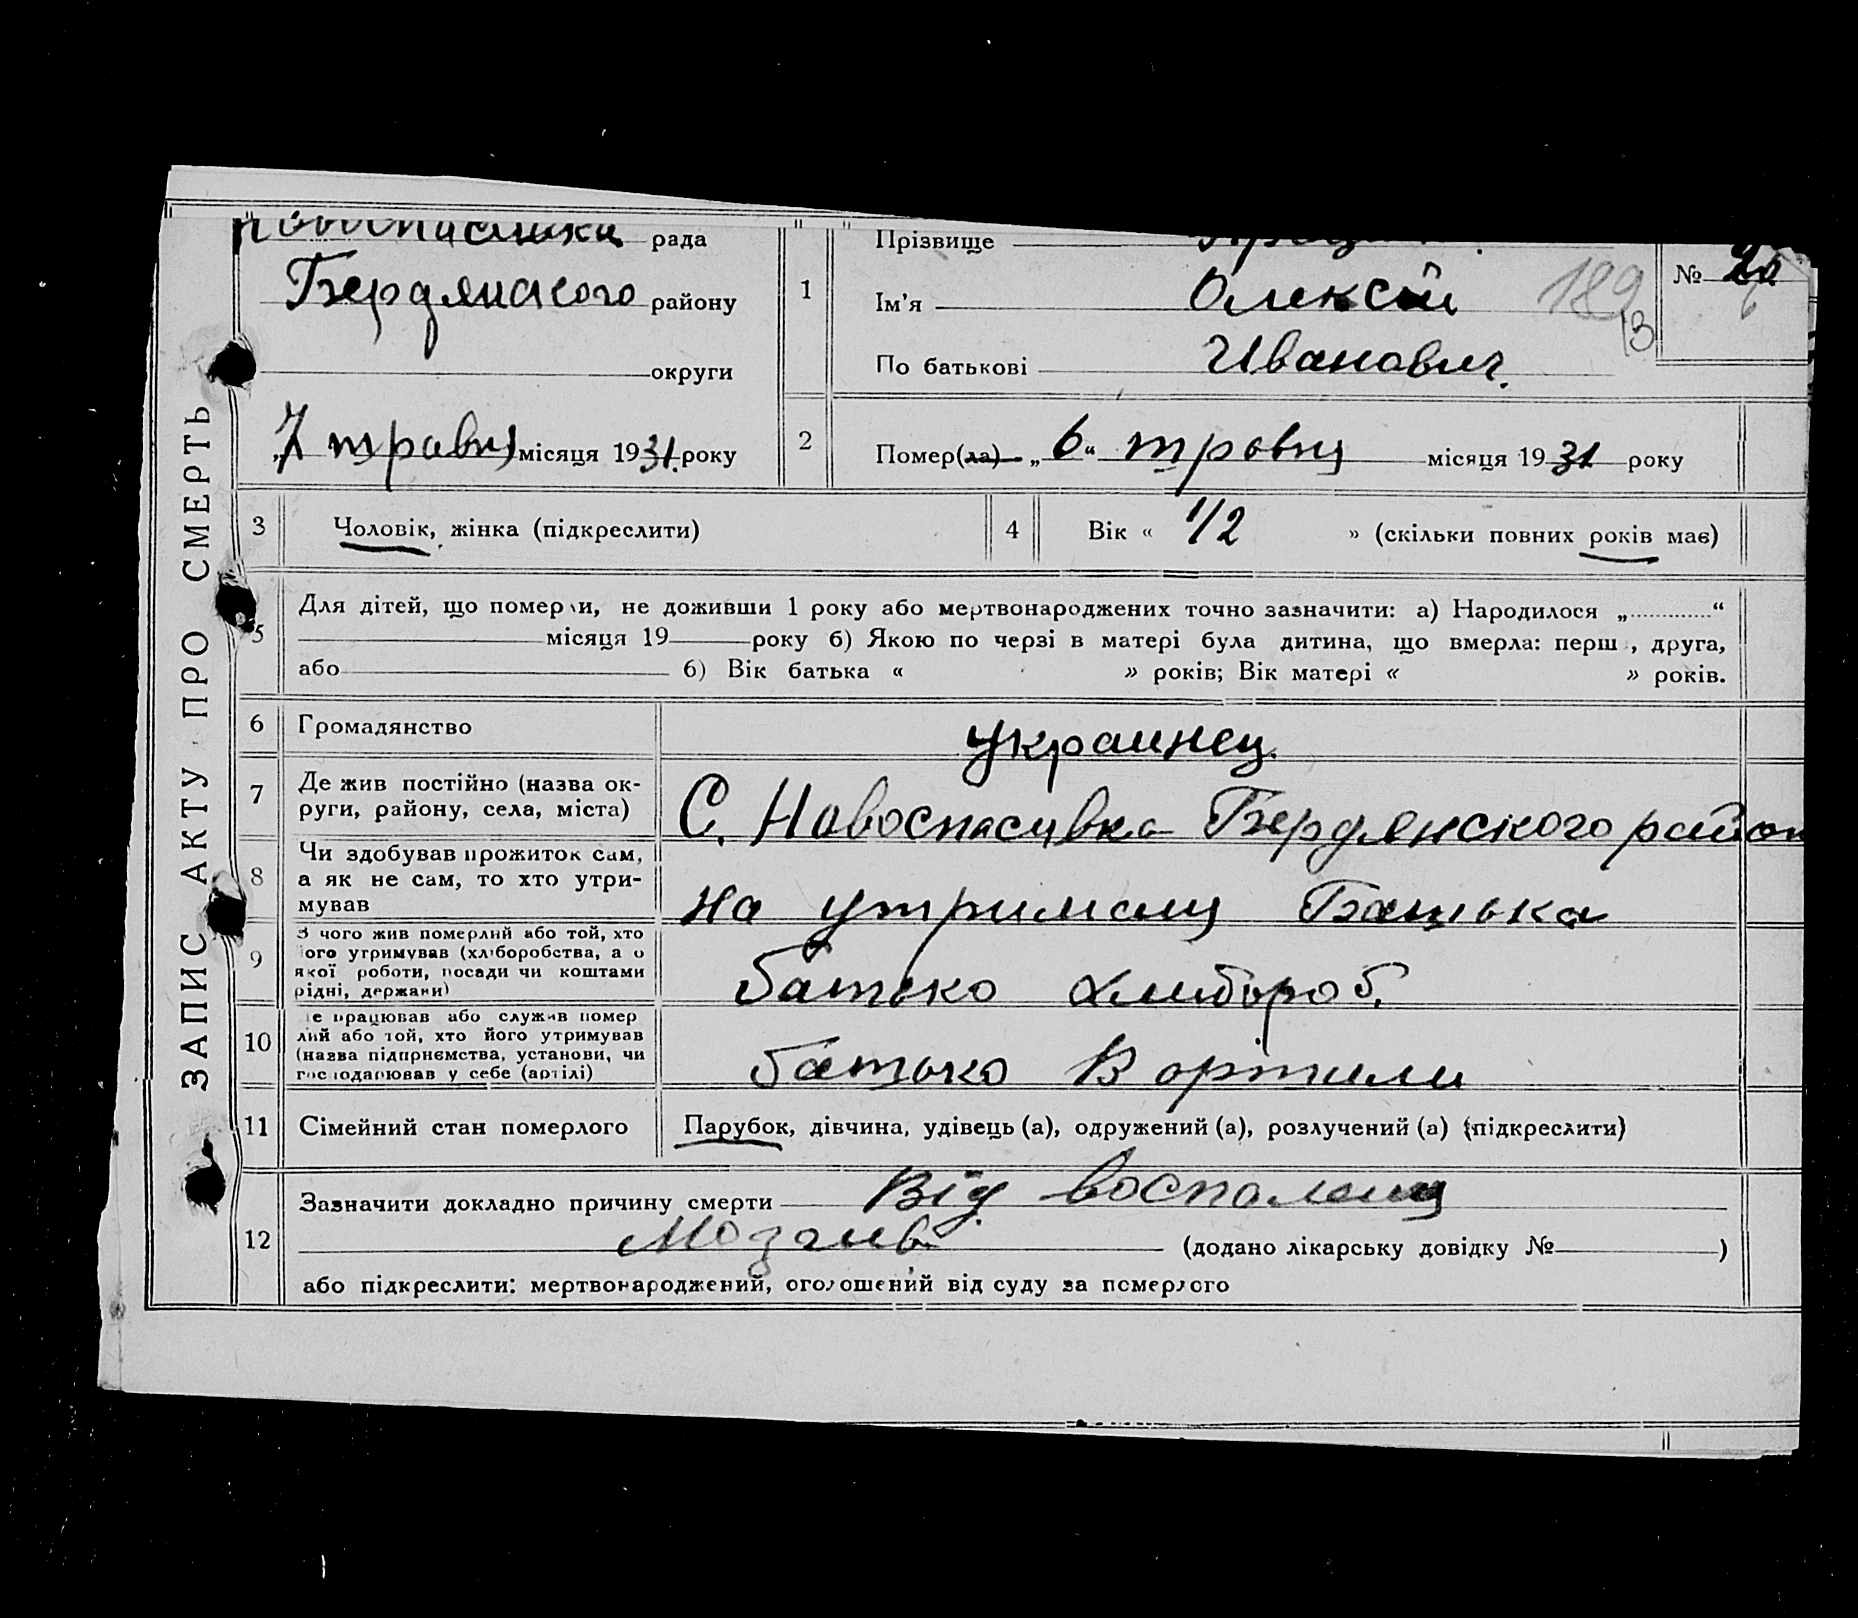 ЗАПИС АКТУ ПРО СМЕРТЬ
рада
Бердянского району
округи
„7 травня місяця 1931. року
1
Прізвище
Ім'я Олексій
По батькові Иванович.
№
189
13
2
Помер(ла) „6“ травня місяця 1931 року
3 Чоловік, жінка (підкреслити)
4 Вік « 1/2 » (скільки повних років має)
5
Для дітей, що померли, не доживши 1 року або мертвонароджених точно зазначити: а) Народилося „ “
місяця 19 року б) Якою по черзі в матері була дитина, що вмерла: перш , друга,
або б) Вік батька « » років; Вік матері « » років.
6 Громадянство украинец.
7 Де жив постійно (назва ок-
руги, району, села, міста)
С. Новоспасивка Бердянского район
8 Чи здобував прожиток сам,
а як не сам, то хто утри-
мував
на утримани Батька
9 З чого жив померлий або той, хто
його утримував (хліборобства, а о
якої роботи, посади чи коштами
рідні, держави)
батько хлибороб.
10 е працював або служив помер
лий або той, хто його утримував
(назва підприємства, установи, чи
господарював у себе (артілі)
батько В артили
11 Сімейний стан померлого
Парубок, дівчина, удівець (а), одружений (а), розлучений (а) (підкреслити)
12
Зазначити докладно причину смерти Від воспаленя
Мозгив (додано лікарську довідку № )
або підкреслити: мертвонароджений, оголошений від суду за померлого